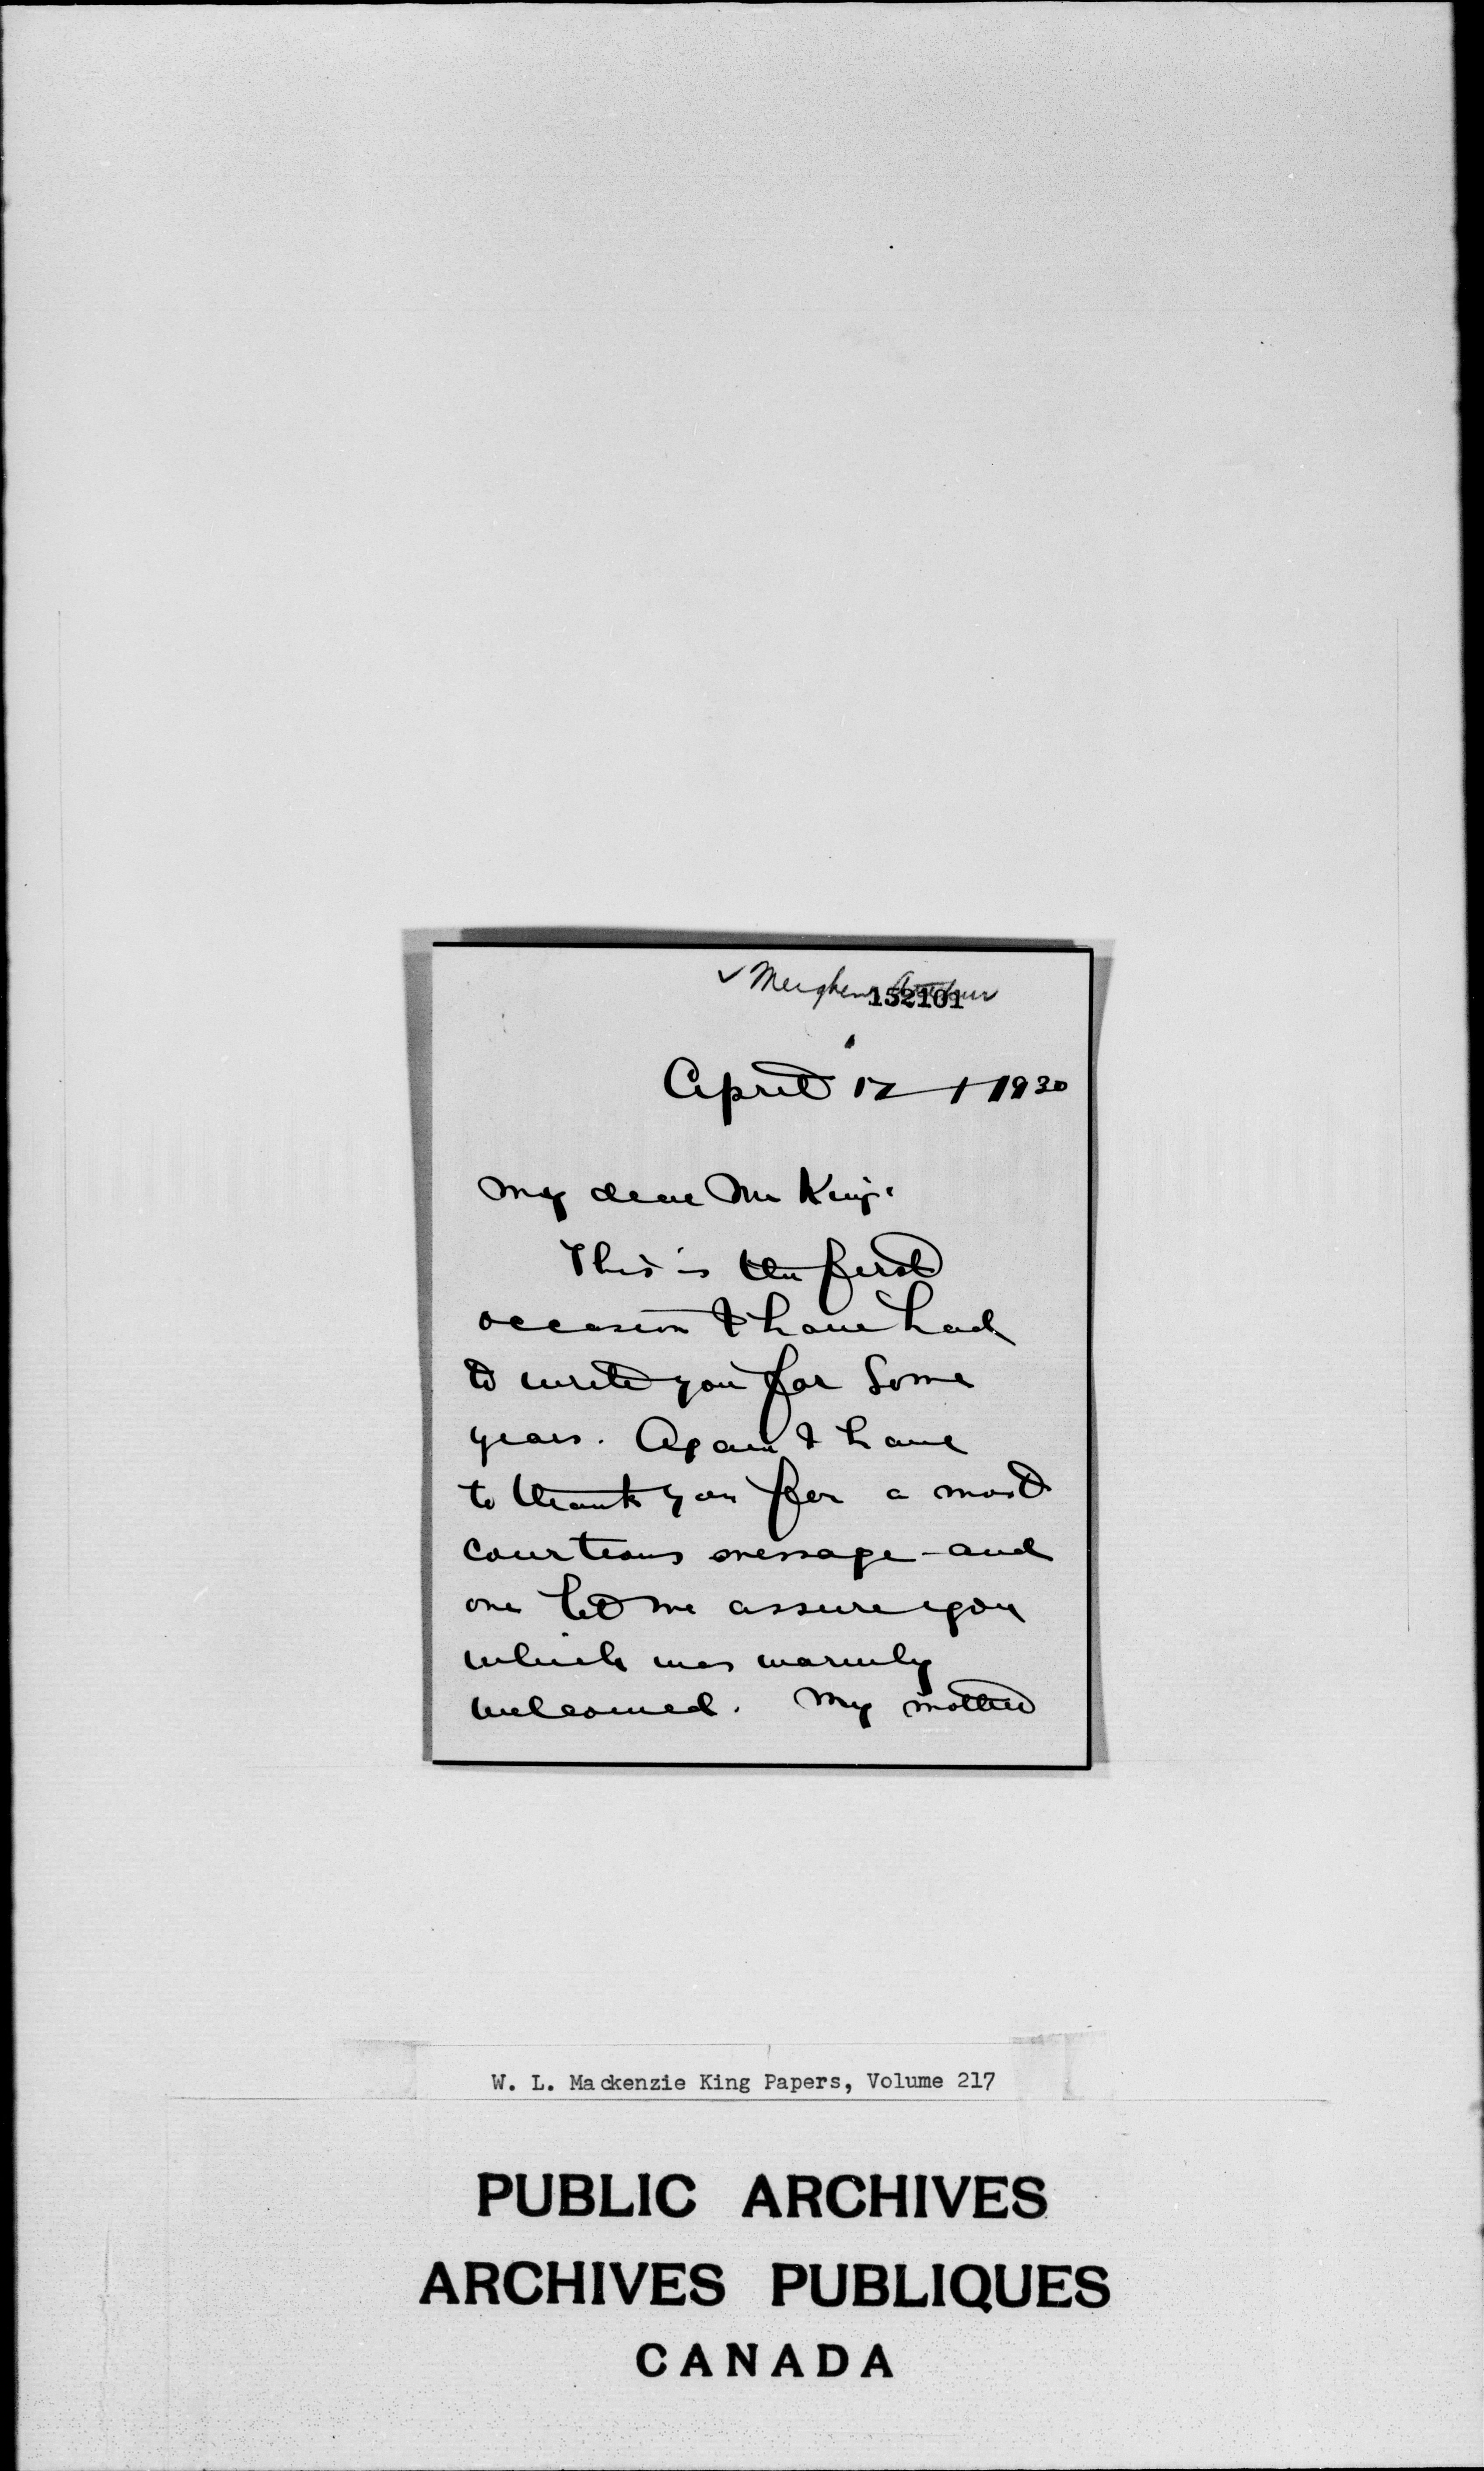 ✓ Meighen, Arthur
152101
April 12 1930
My dear Mr King:
This is the first
occasion I have had
to write you for some
years. Again I have
to thank you for a most
courteous message - and
one let me assure you
which was warmly
welcomed. My mother
W. L. Mackenzie King Papers, Volume 217
PUBLIC ARCHIVES
ARCHIVES PUBLIQUES
CANADA